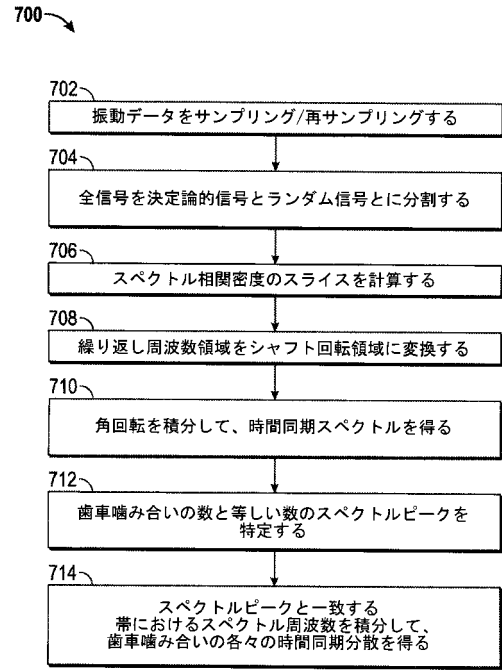 700
702
振動データをサンプリング/再サンプリングする
704
全信号を決定論的信号とランダム信号とに分割する
706
スペクトル相関密度のスライスを計算する
708
繰り返し周波数領域をシャフト回転領域に変換する
710
角回転を積分して、時間同期スペクトルを得る
712
歯車噛み合いの数と等しい数のスペクトルピークを
特定する
714
スペクトルピークと一致する
帯におけるスペクトル周波数を積分して、
歯車噛み合いの各々の時間同期分散を得る